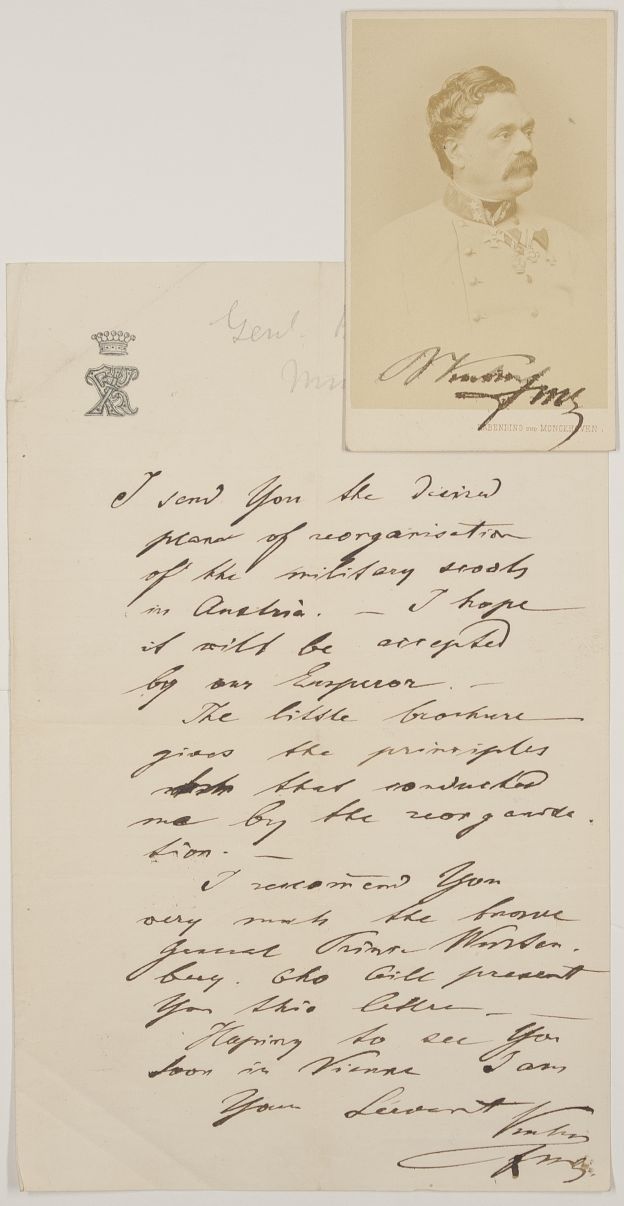 Genl.
FMLt
RABENDING UND MONCKHOVEN.
I send You the desired
plans of reorganisation
of the military scools
in Austria. — I hope
it will be accepted
by our Emperor. —
The little brochure
gives the principles
that conducted
me by the reorganisa-
tion. —
I recomend You
very much the brave
General Prince Wurtem-
berg. who will present
You this lettre. —
Hoping to see You
soon in Vienna I am
Your Servant